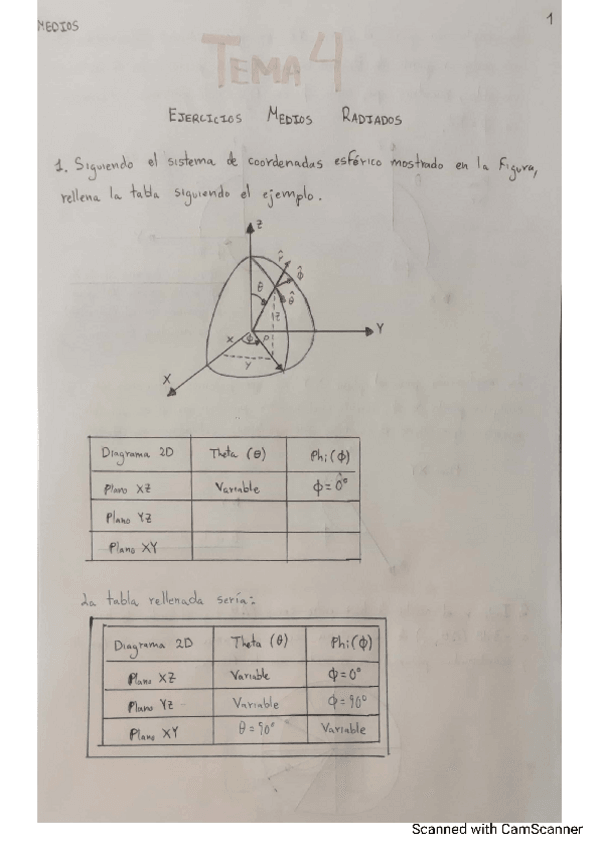 MEDIOS
1
TEMA 4
EJERCICIOS MEDIOS RADIADOS
1. Siguiendo el sistema de coordenadas esférico mostrado en la Figura,
rellena la tabla siguiendo el ejemplo.
Z
r̂
ϕ̂
θ
θ̂
Z
Y
X
ϕ
ρ
Y
X
Diagrama 2D Theta (θ) Phi (ϕ)
Plano XZ Variable ϕ = 0°
Plano YZ
Plano XY
La tabla rellenada sería:
Diagrama 2D Theta (θ) Phi (ϕ)
Plano XZ Variable ϕ = 0°
Plano YZ Variable ϕ = 90°
Plano XY θ = 90° Variable
Scanned with CamScanner